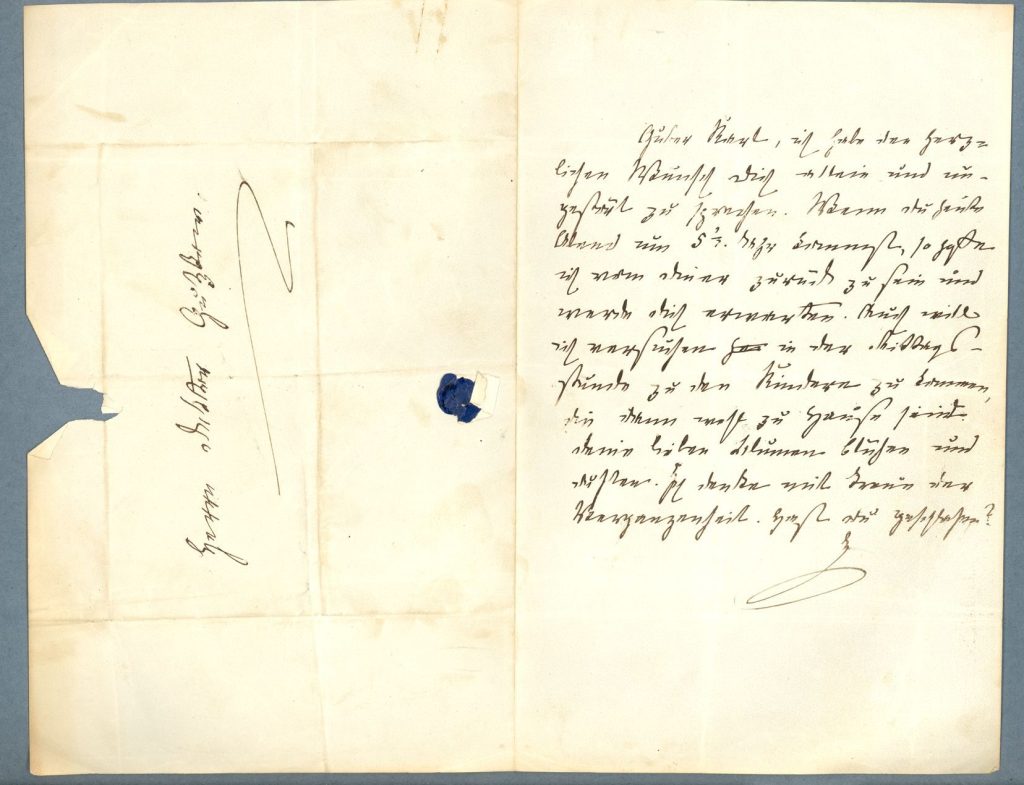 Guter Karl, ich habe den herz-
lichen Wunsch dich allein und un-
gestört zu sprechen. Wenn du heute
Abend um 5½. Uhr kommst, so hoffe
ich vom diner zurück zu sein und
werde dich erwarten. Auch will
ich versuchen in der Mittags-
stunde zu den Kindern zu kommen,
die dann wohl zu Hause sind.
deine lieben Blumen blühen und
duften. Ich denke mit Treue der
Vergangenheit. Hast du geschlafen?
Herrn